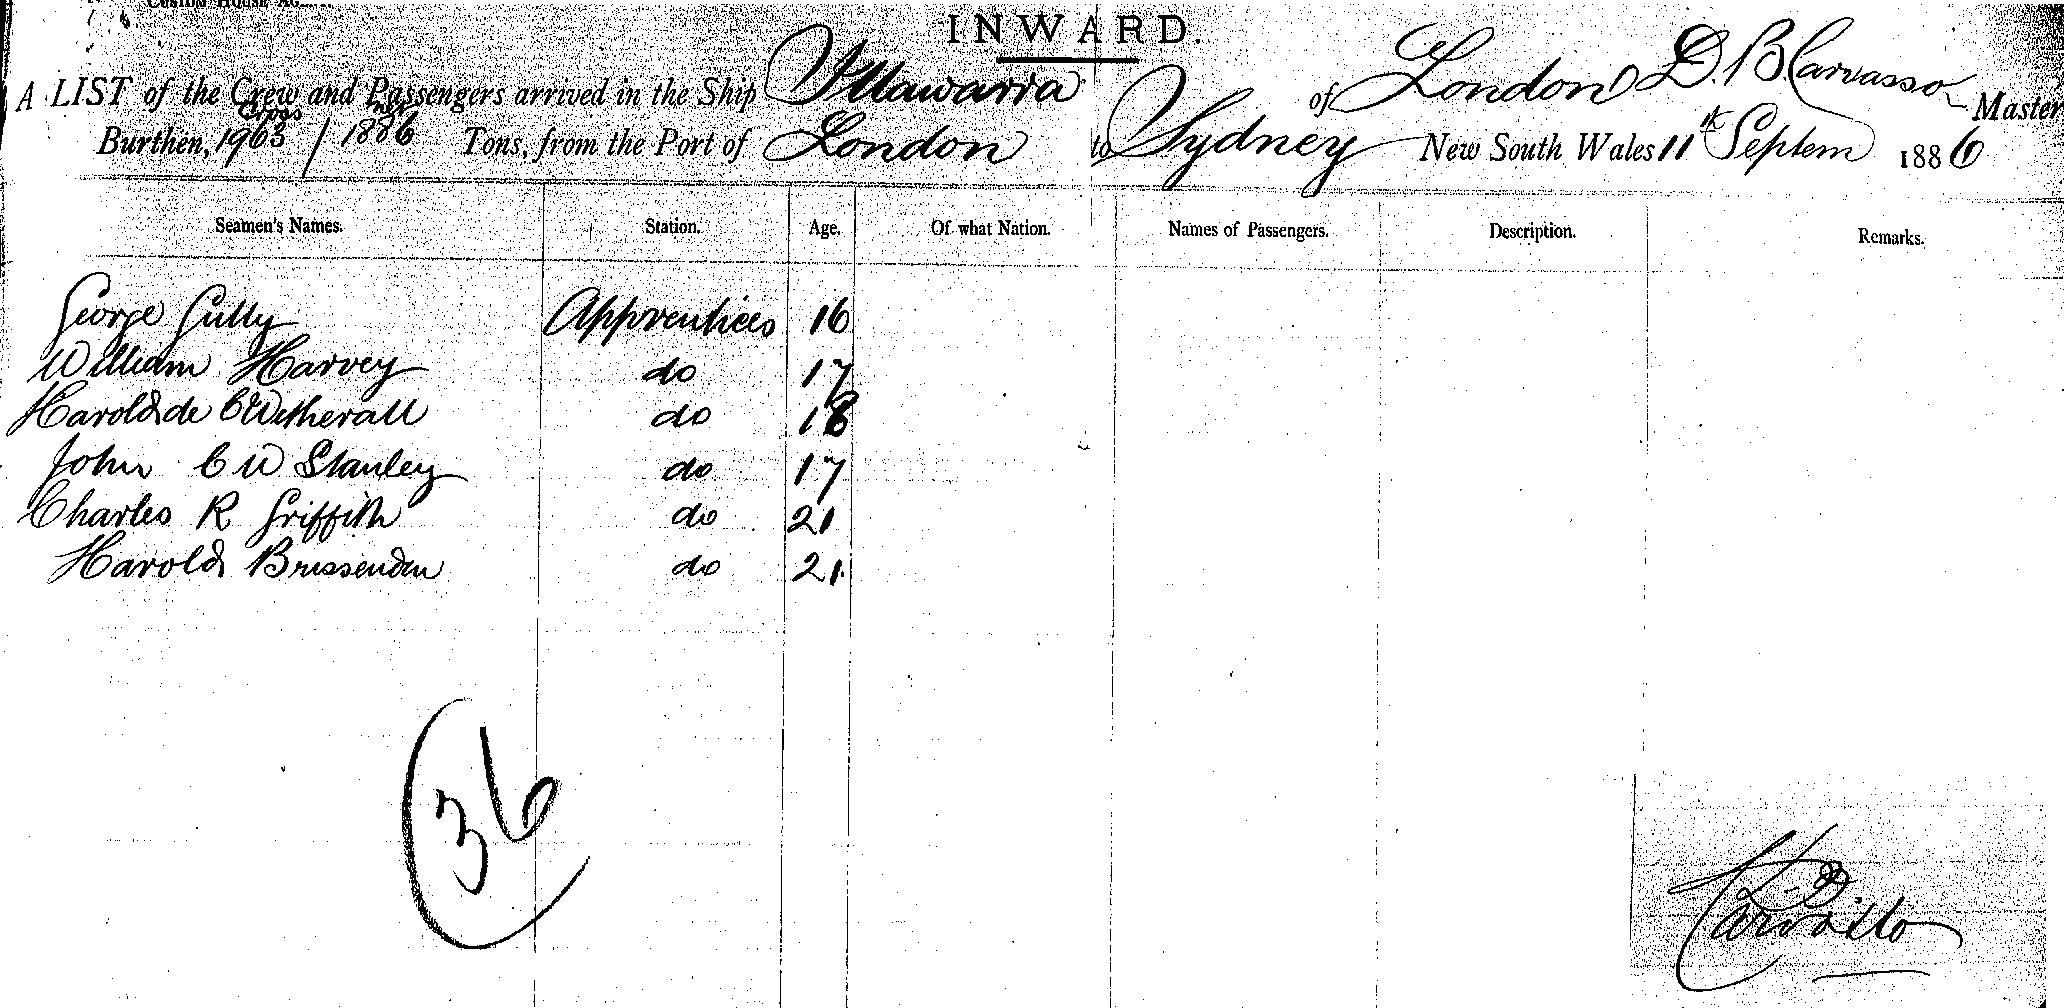 Custom House
INWARD.
A LIST of the Crew and Passengers arrived in the Ship Illawarra of London D. B Carvasso Master
Gross
Burthen, 1963 / 1886 Tons, from the Port of London to Sydney New South Wales 11th Septem 1886
Seamen's Names. Station. Age. Of what Nation. Names of Passengers. Description. Remarks.
George Gully Apprentices 16
William Harvey do 17
Harold de C Wetherall do 18
John C W Stanley do 17
Charles R Griffith do 21
Harold Brissenden do 21
36